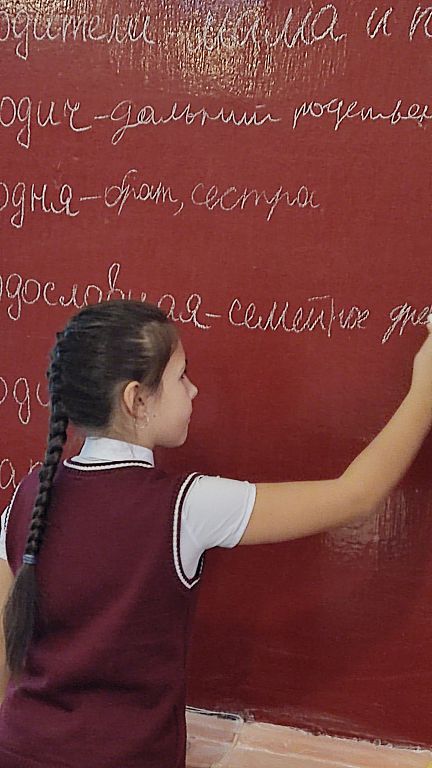 одители - мама и п
одич - дальний родствен
одня - брат, сестра
одословная - семейное дре
оди